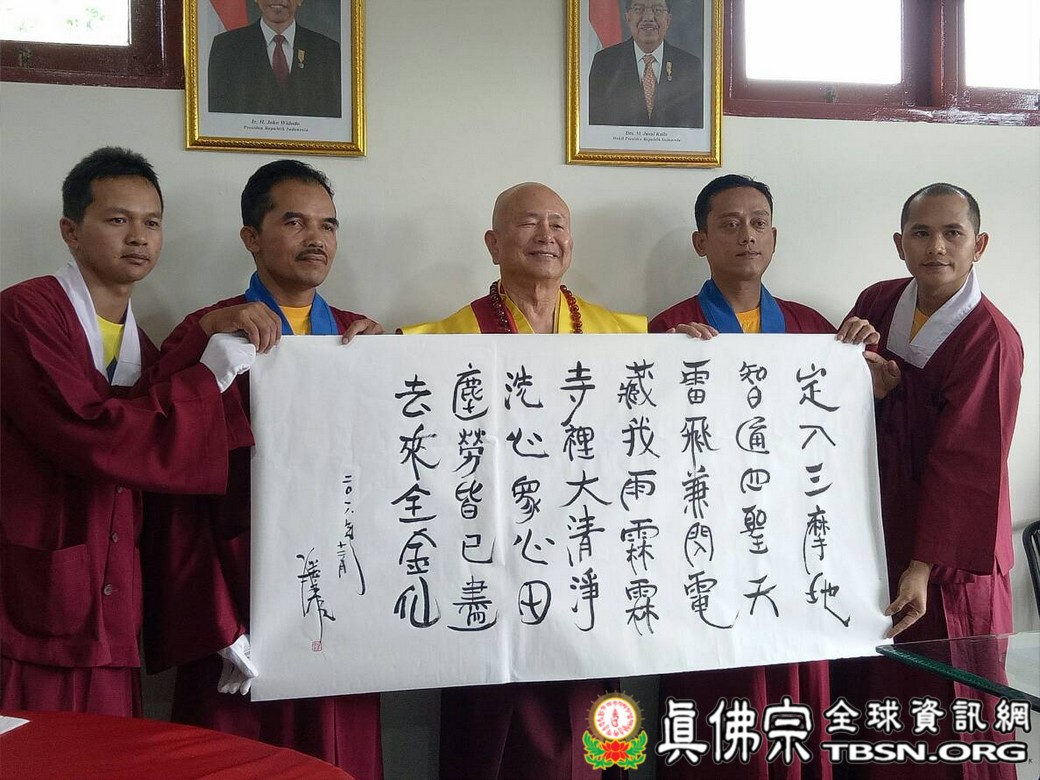 Ir. H. Joko Widodo
Presiden Republik Indonesia
Drs. M. Jusuf Kalla
Wakil Presiden Republik Indonesia
定入三摩地
智通四聖天
雷飛兼閃電
藏我雨霖霖
寺裡大清淨
洗心眾心田
塵勞皆已盡
去來全金仙
二〇一六年
眞佛宗全球資訊網
TBSN.ORG